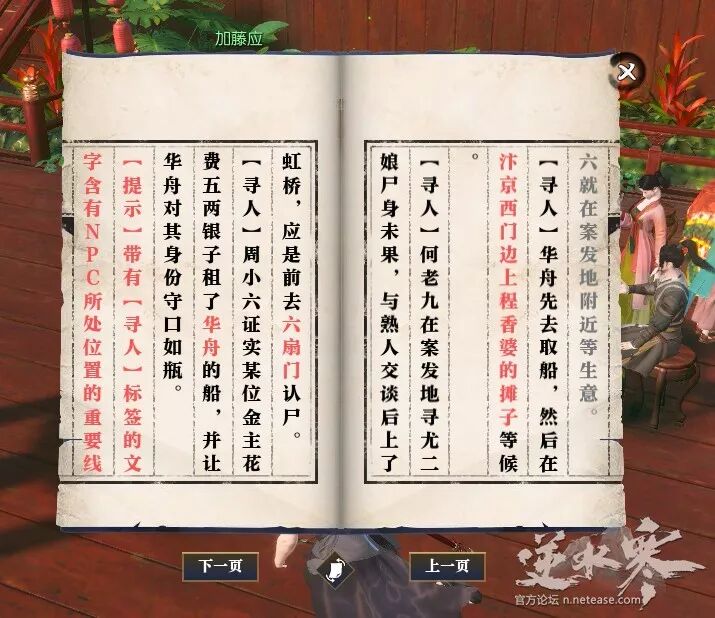 加藤应
六就在案发地附近等生意。
【寻人】华舟先去取船，然后在
汴京西门边上桯香婆的摊子等候
。
【寻人】何老九在案发地寻尤二
娘尸身未果，与熟人交谈后上了
虹桥，应是前去六扇门认尸。
【寻人】周小六证实某位金主花
费五两银子租了华舟的船，并让
华舟对其身份守口如瓶。
【提示】带有【寻人】标签的文
字含有NPC所处位置的重要线
下一页
上一页
逆水寒
官方论坛 n.netease.com